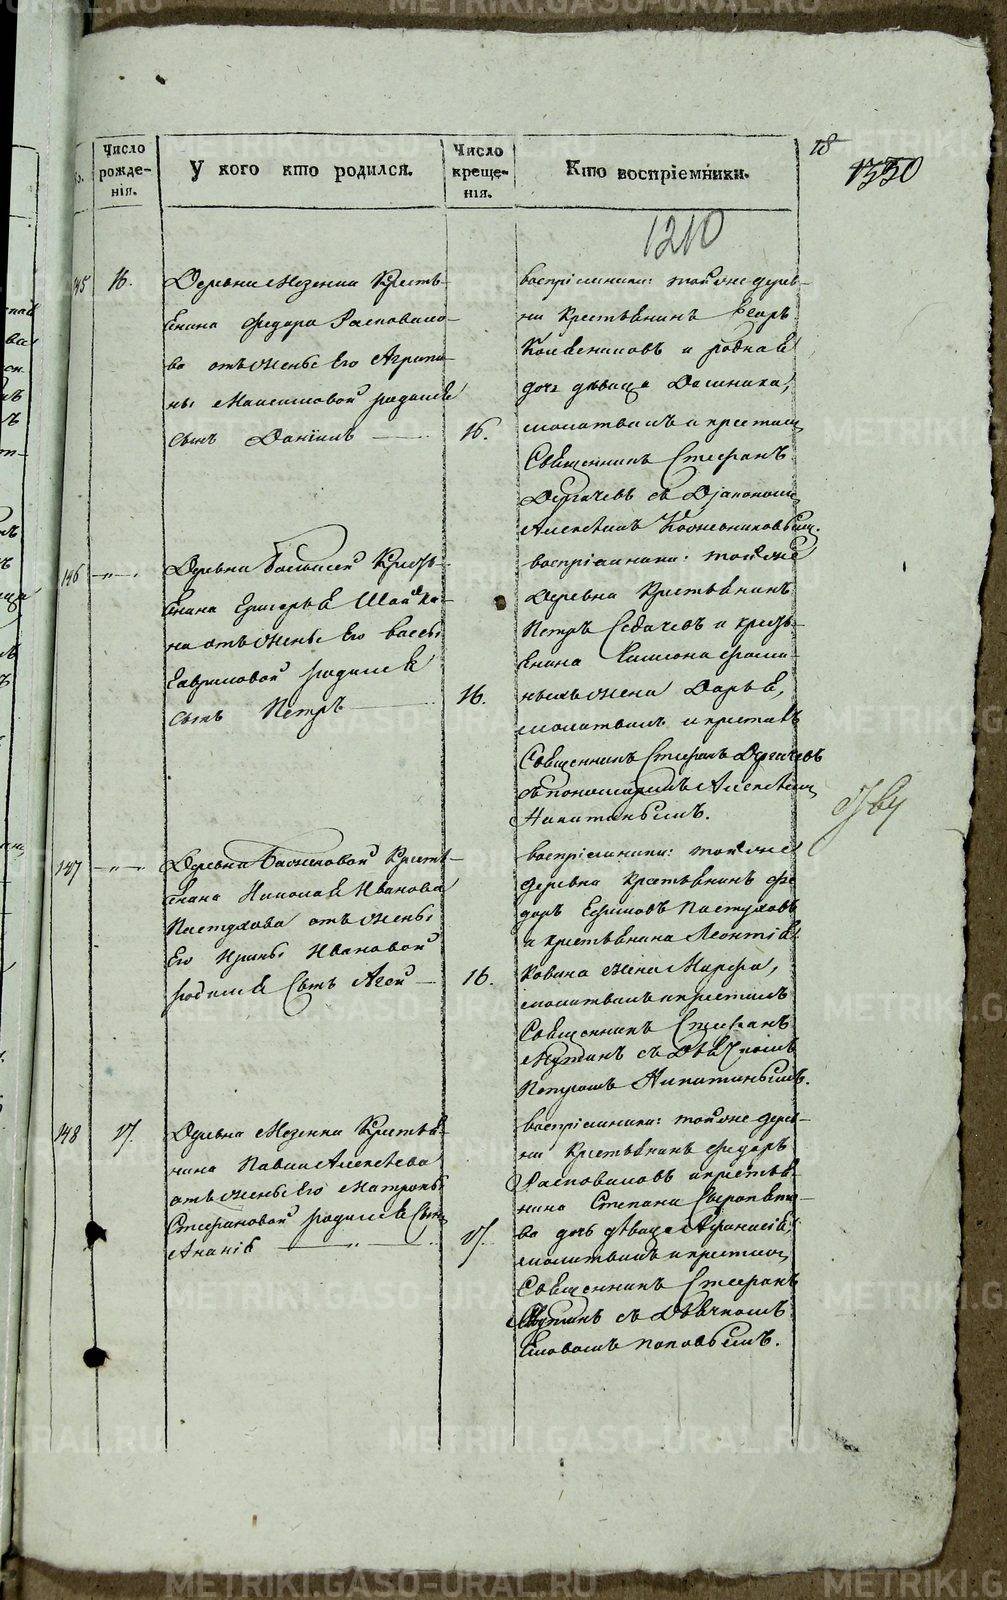 18
1350
Число рожденія.
У кого кто родился.
Число крещенія.
Кто воспріемники.
1210
145
16.
Деревни Мезенки Кресть-
янина Федора Располомо-
ва отъ жены его Агрипи-
ны Максимовой родился
сынъ Даніилъ
16.
воспріемники: тойже дерев-
ни Крестьянинъ Егоръ
Кожевниковъ и родная
дочь дѣвица Домника,
молитвилъ и крестилъ
Священникъ Стефанъ
Дергачевъ съ Діакономъ
Алексѣемъ Кожевниковымъ.
146
Деревни Большой Кресть-
янина Григорья
на отъ жены его Вассы
Гавриловой родился
сынъ Петръ
16.
воспріемники: тойже
Деревни Крестьянинъ
Петръ Седачевъ и кресть-
янина Филимона Фоми-
ныхъ жена Дарья,
молитвилъ и крестилъ
Священникъ Стефанъ Дергачевъ
съ пономаремъ Алексѣемъ
Никитинымъ.
147
Деревни Баженовой Кресть-
янина Николая Иванова
Пастухова отъ жены
его Ирины Ивановой
родился Сынъ Агей
16.
воспріемники: тойже
деревни Крестьянинъ Фе
доръ Ефимовъ Пастуховъ
и крестьянина Леонтія
Ковина жена Марфа,
молитвилъ и крестилъ
Священникъ Стефанъ
Мутинъ съ Дьячкомъ
Петромъ Никитинымъ.
148
17.
Деревни Мезенки Крестья-
нина Павла Алексѣева
отъ жены его Матроны
Стефановой родился Сынъ
Ананій
17.
воспріемники: тойже дерев-
ни Крестьянинъ Федоръ
Располомовъ и крестья-
нина Степана
ва дочь дѣвица Афанасія,
молитвилъ и крестилъ
Священникъ Стефанъ
Мутинъ съ Дьячкомъ
Яковомъ Поповымъ.
METRIKI.GASO-URAL.RU